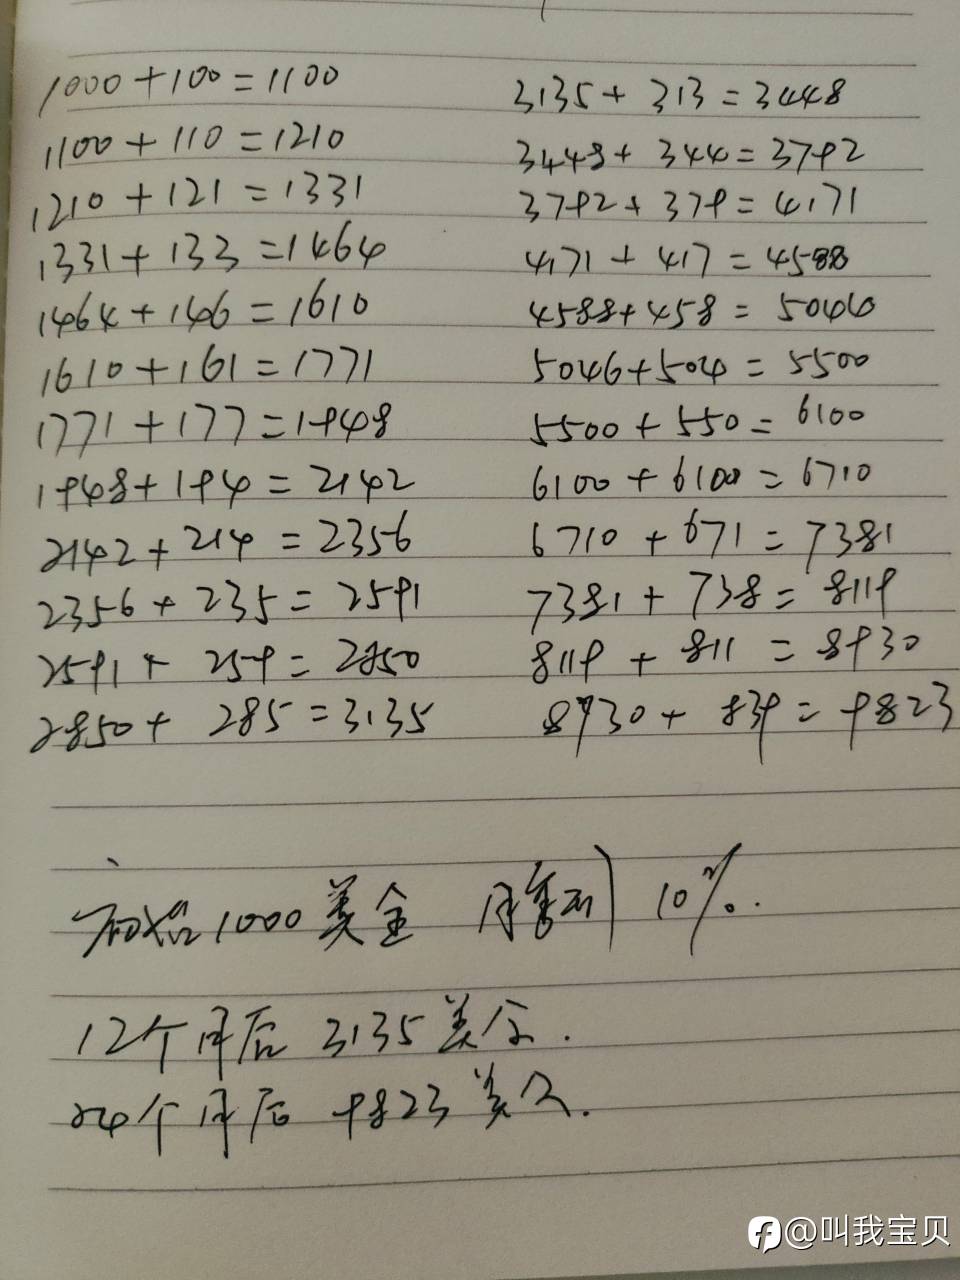 1000+100=1100
1100+110=1210
1210+121=1331
1331+133=1464
1464+146=1610
1610+161=1771
1771+177=1948
1948+194=2142
2142+214=2356
2356+235=2591
2591+259=2850
2850+285=3135
3135+313=3448
3448+344=3792
3792+379=4171
4171+417=4588
4588+458=5046
5046+504=5500
5500+550=6100
6100+6100=6710
6710+671=7381
7381+738=8119
8119+811=8930
8930+839=9823
初始1000美金 月重利 10%.
12个月后 3135美金.
24个月后 9823美金.
@叫我宝贝